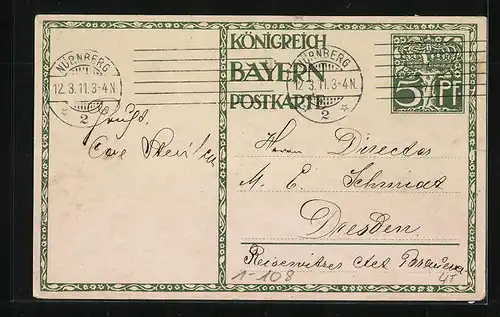 KÖNIGREICH
BAYERN
POSTKARTE
5 Pf
NÜRNBERG
12.3.11.3-4N.
2
NÜRNBERG
12.3.11.3-4N.
2
Gruß.
Herrn Director
M. E. Schmidt
Dresden.
1-108